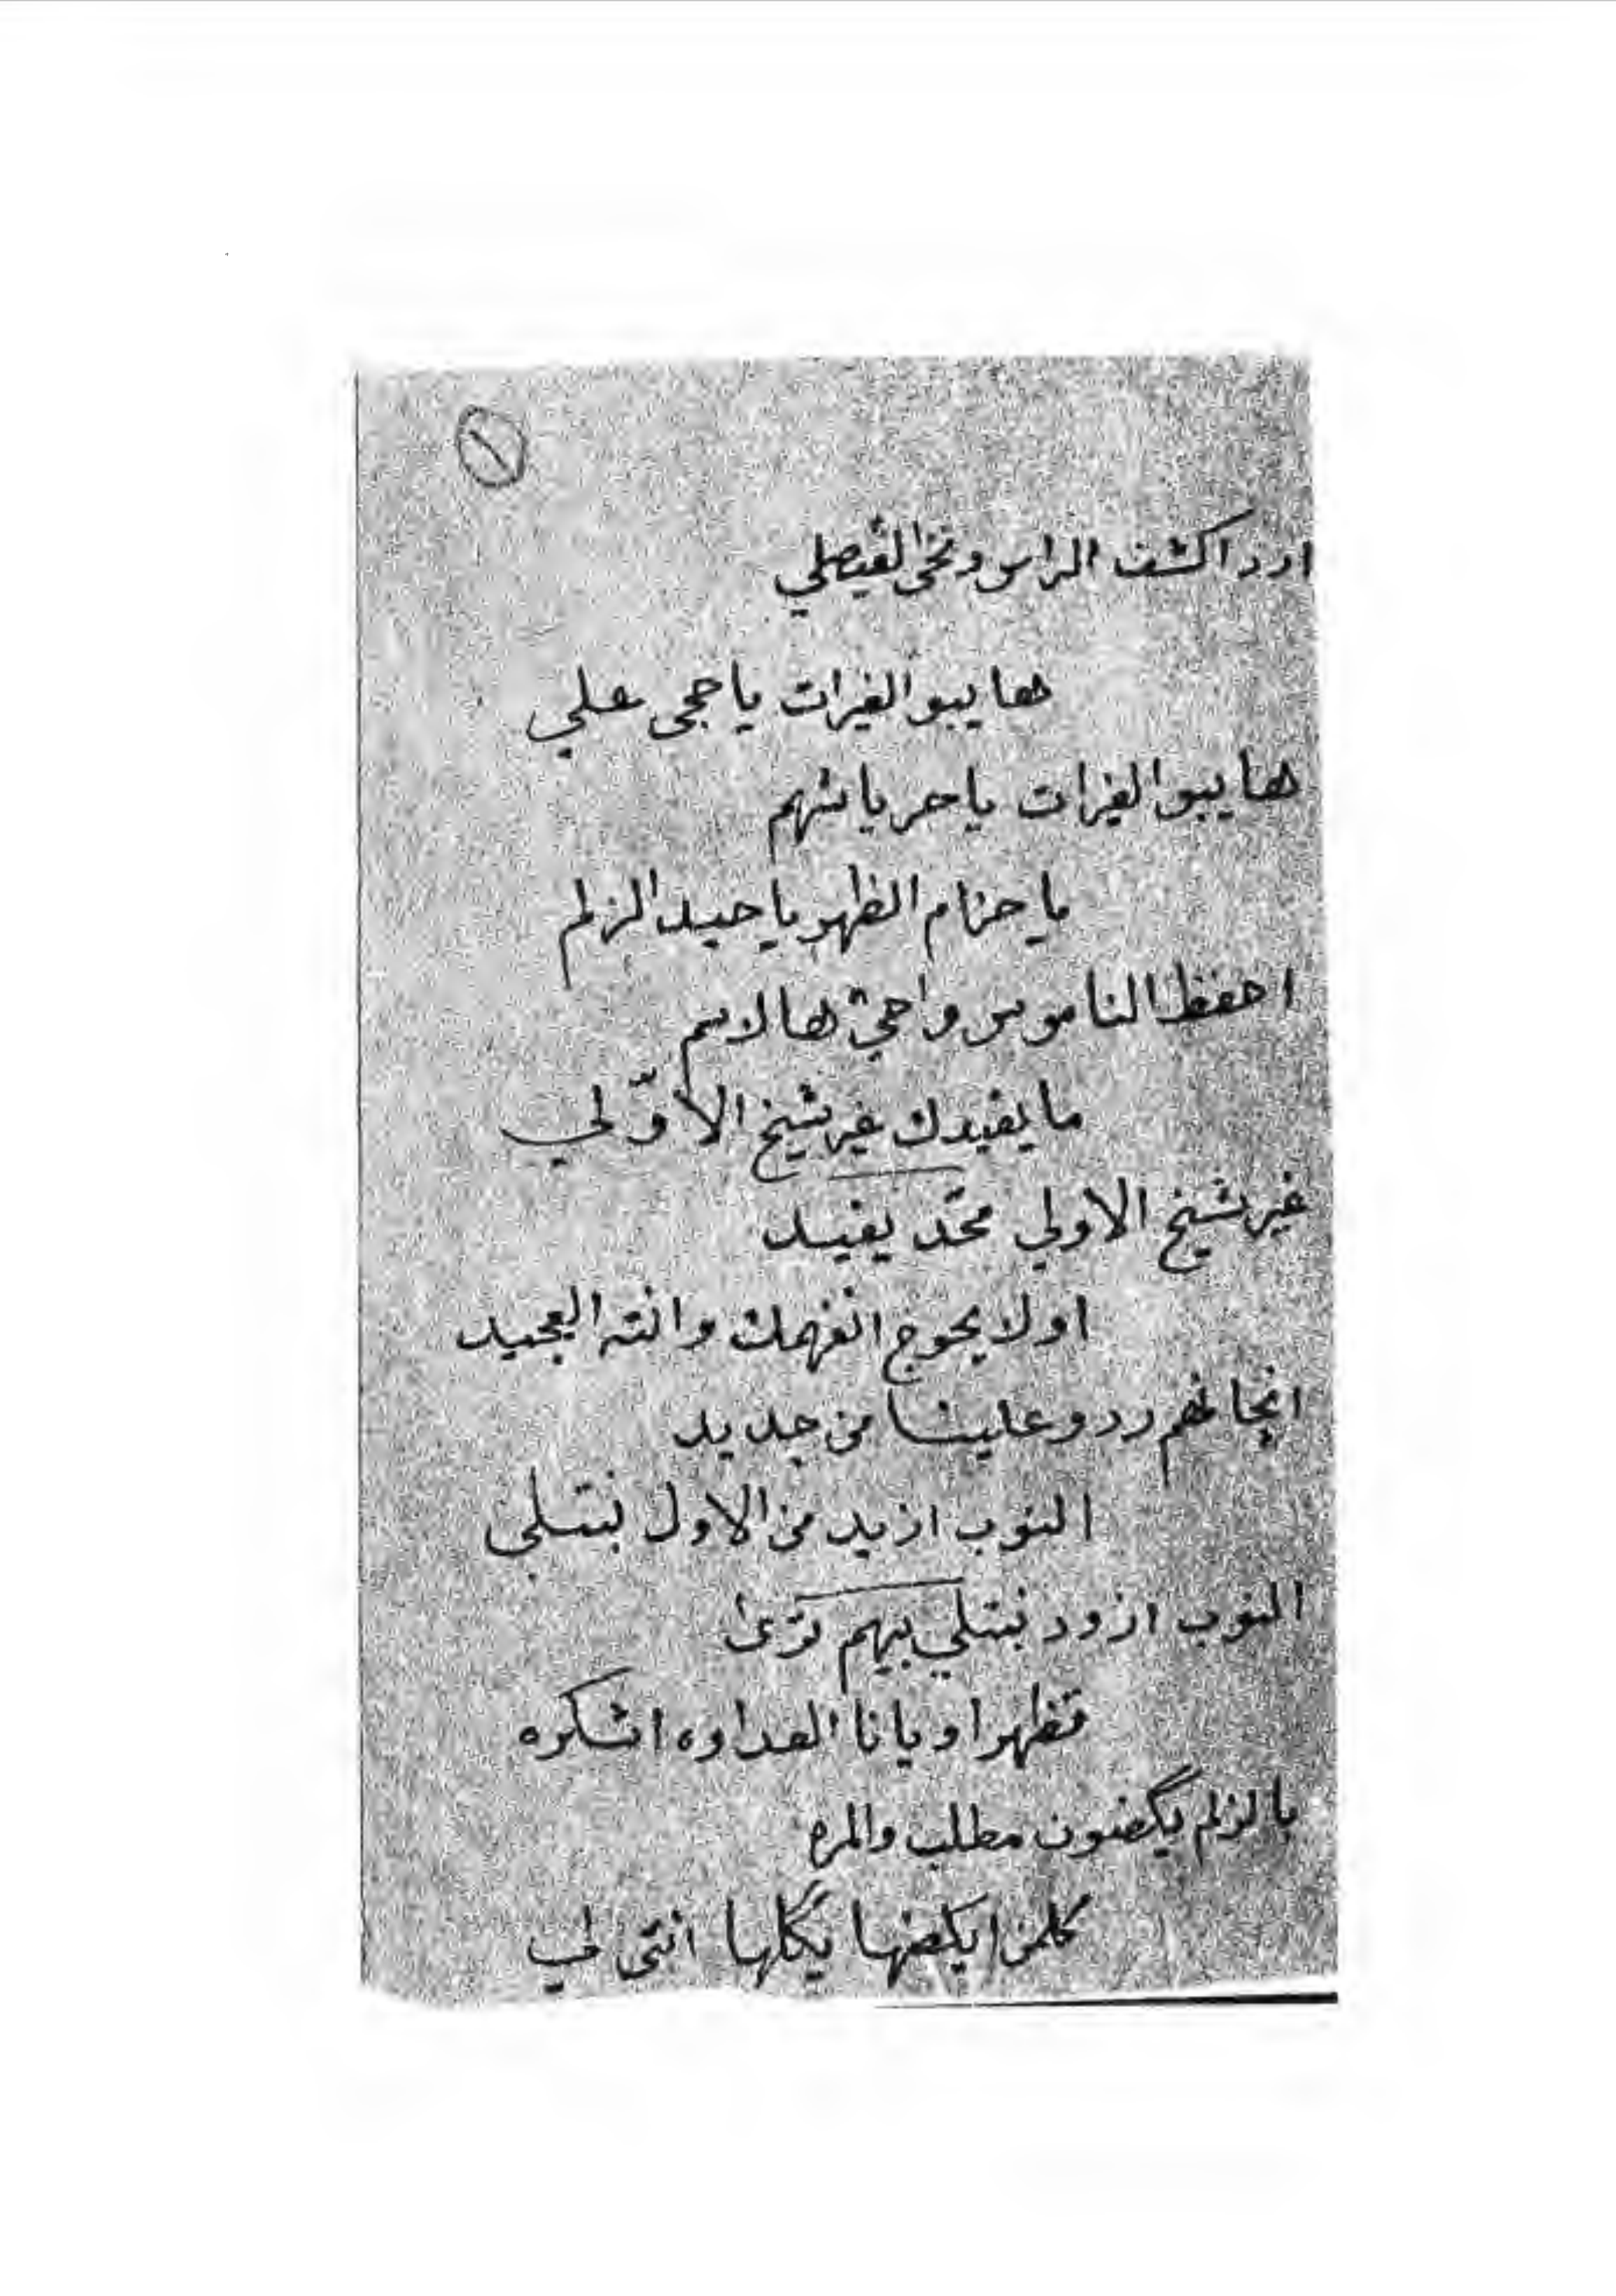 ١
ارد اكشف الراس ونخى الفيصلي
ها يبو الغيرات ياحجي علي
ها يبو الغيرات ياحر ياشهم
يا حزام الظهر يا حيد الزلم
احفظ الناموس واحي هالاسم
ما يفيدك غير شيخ الاوّلي
غير شيخ الاولي محّد يفيد
او لا يحوج انفهمك وانته العجيد
انجانهم ردو علينا من جديد
النوب ازيد من الاول نبتلي
النوب ازود نبتلي بيهم ترى
تظهر اويانا العداوه اشكره
بالزلم يگضون مطلب والمره
كلمن ايكضها يگلها انتي لي